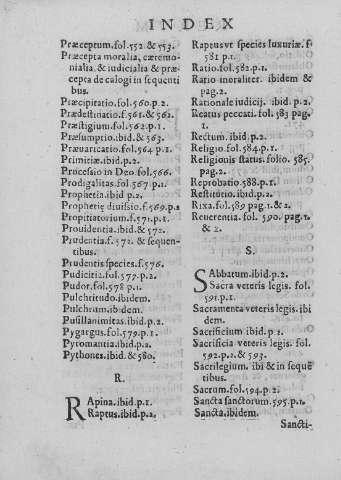 INDEX
Præceptum.fol.552.& 553.
Præcepta moralia, cæremo-
nialia & iudicialia & præ-
cepta decalogi in sequenti
bus.
Præcipitatio.fol.560.p.2.
Prædestinatio.f.561.& 562.
Præstigium.fol.562.p.1.
Præsumptio.ibid.& 563.
Præuaricatio.fol.564.p.1.
Primitiæ.ibid.p.2.
Processio in Deo.fol.566.
Prodigalitas.fol.567.p.1.
Prophetia.ibid.p.2.
Prophetię diuisio.f.569.p.1
Propitiatorium.f.571.p.1.
Prouidentia.ibid.& 572.
Prudentia.f.572. & sequen-
tibus.
Prudentis species.f.576.
Pudicitia.fol.577.p.2.
Pudor.fol.578.p.1.
Pulchritudo.ibidem.
Pulchrum.ibidem.
Pusillanimitas.ibid.p.2.
Pygargus.fol.579.p.1.
Pyromantia.ibid.p.2.
Pythones.ibid.& 580.
R.
RApina.ibid.p.1.
Raptus.ibid.p.2.
Raptus vt species luxuriæ.f.
581.p.1.
Ratio.fol.582.p.1.
Ratio moraliter. ibidem &
pag.2.
Rationale iudicij. ibid p.2.
Reatus peccati.fol.583 pag.
1.
Rectum.ibid.p.2.
Religio.fol.584.p.1.
Religionis status.folio.585.
pag.2.
Reprobatio.588.p.1.
Restitutio.ibid.p.2.
Rixa.fol.589 pag.1.& 2.
Reuerentia.fol. 590. pag.1.
& 2.
S.
SAbbatum.ibid.p.2.
Sacra veteris legis. fol.
591.p.1.
Sacramenta veteris legis.ibi
dem.
Sacrificium ibid.p.2.
Sacrificia veteris legis. fol.
592.p.2.& 593.
Sacrilegium. ibi & in sequē
tibus.
Sacrum.fol.594.p.2.
Sancta sanctorum.595.p.1.
Sancta.ibidem.
Sancti-